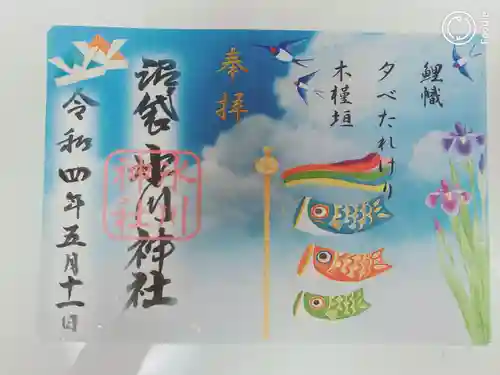 鯉幟
夕べたれけり
木槿垣
奉拝
沼袋氷川神社
氷川
神社
令和四年五月十一日